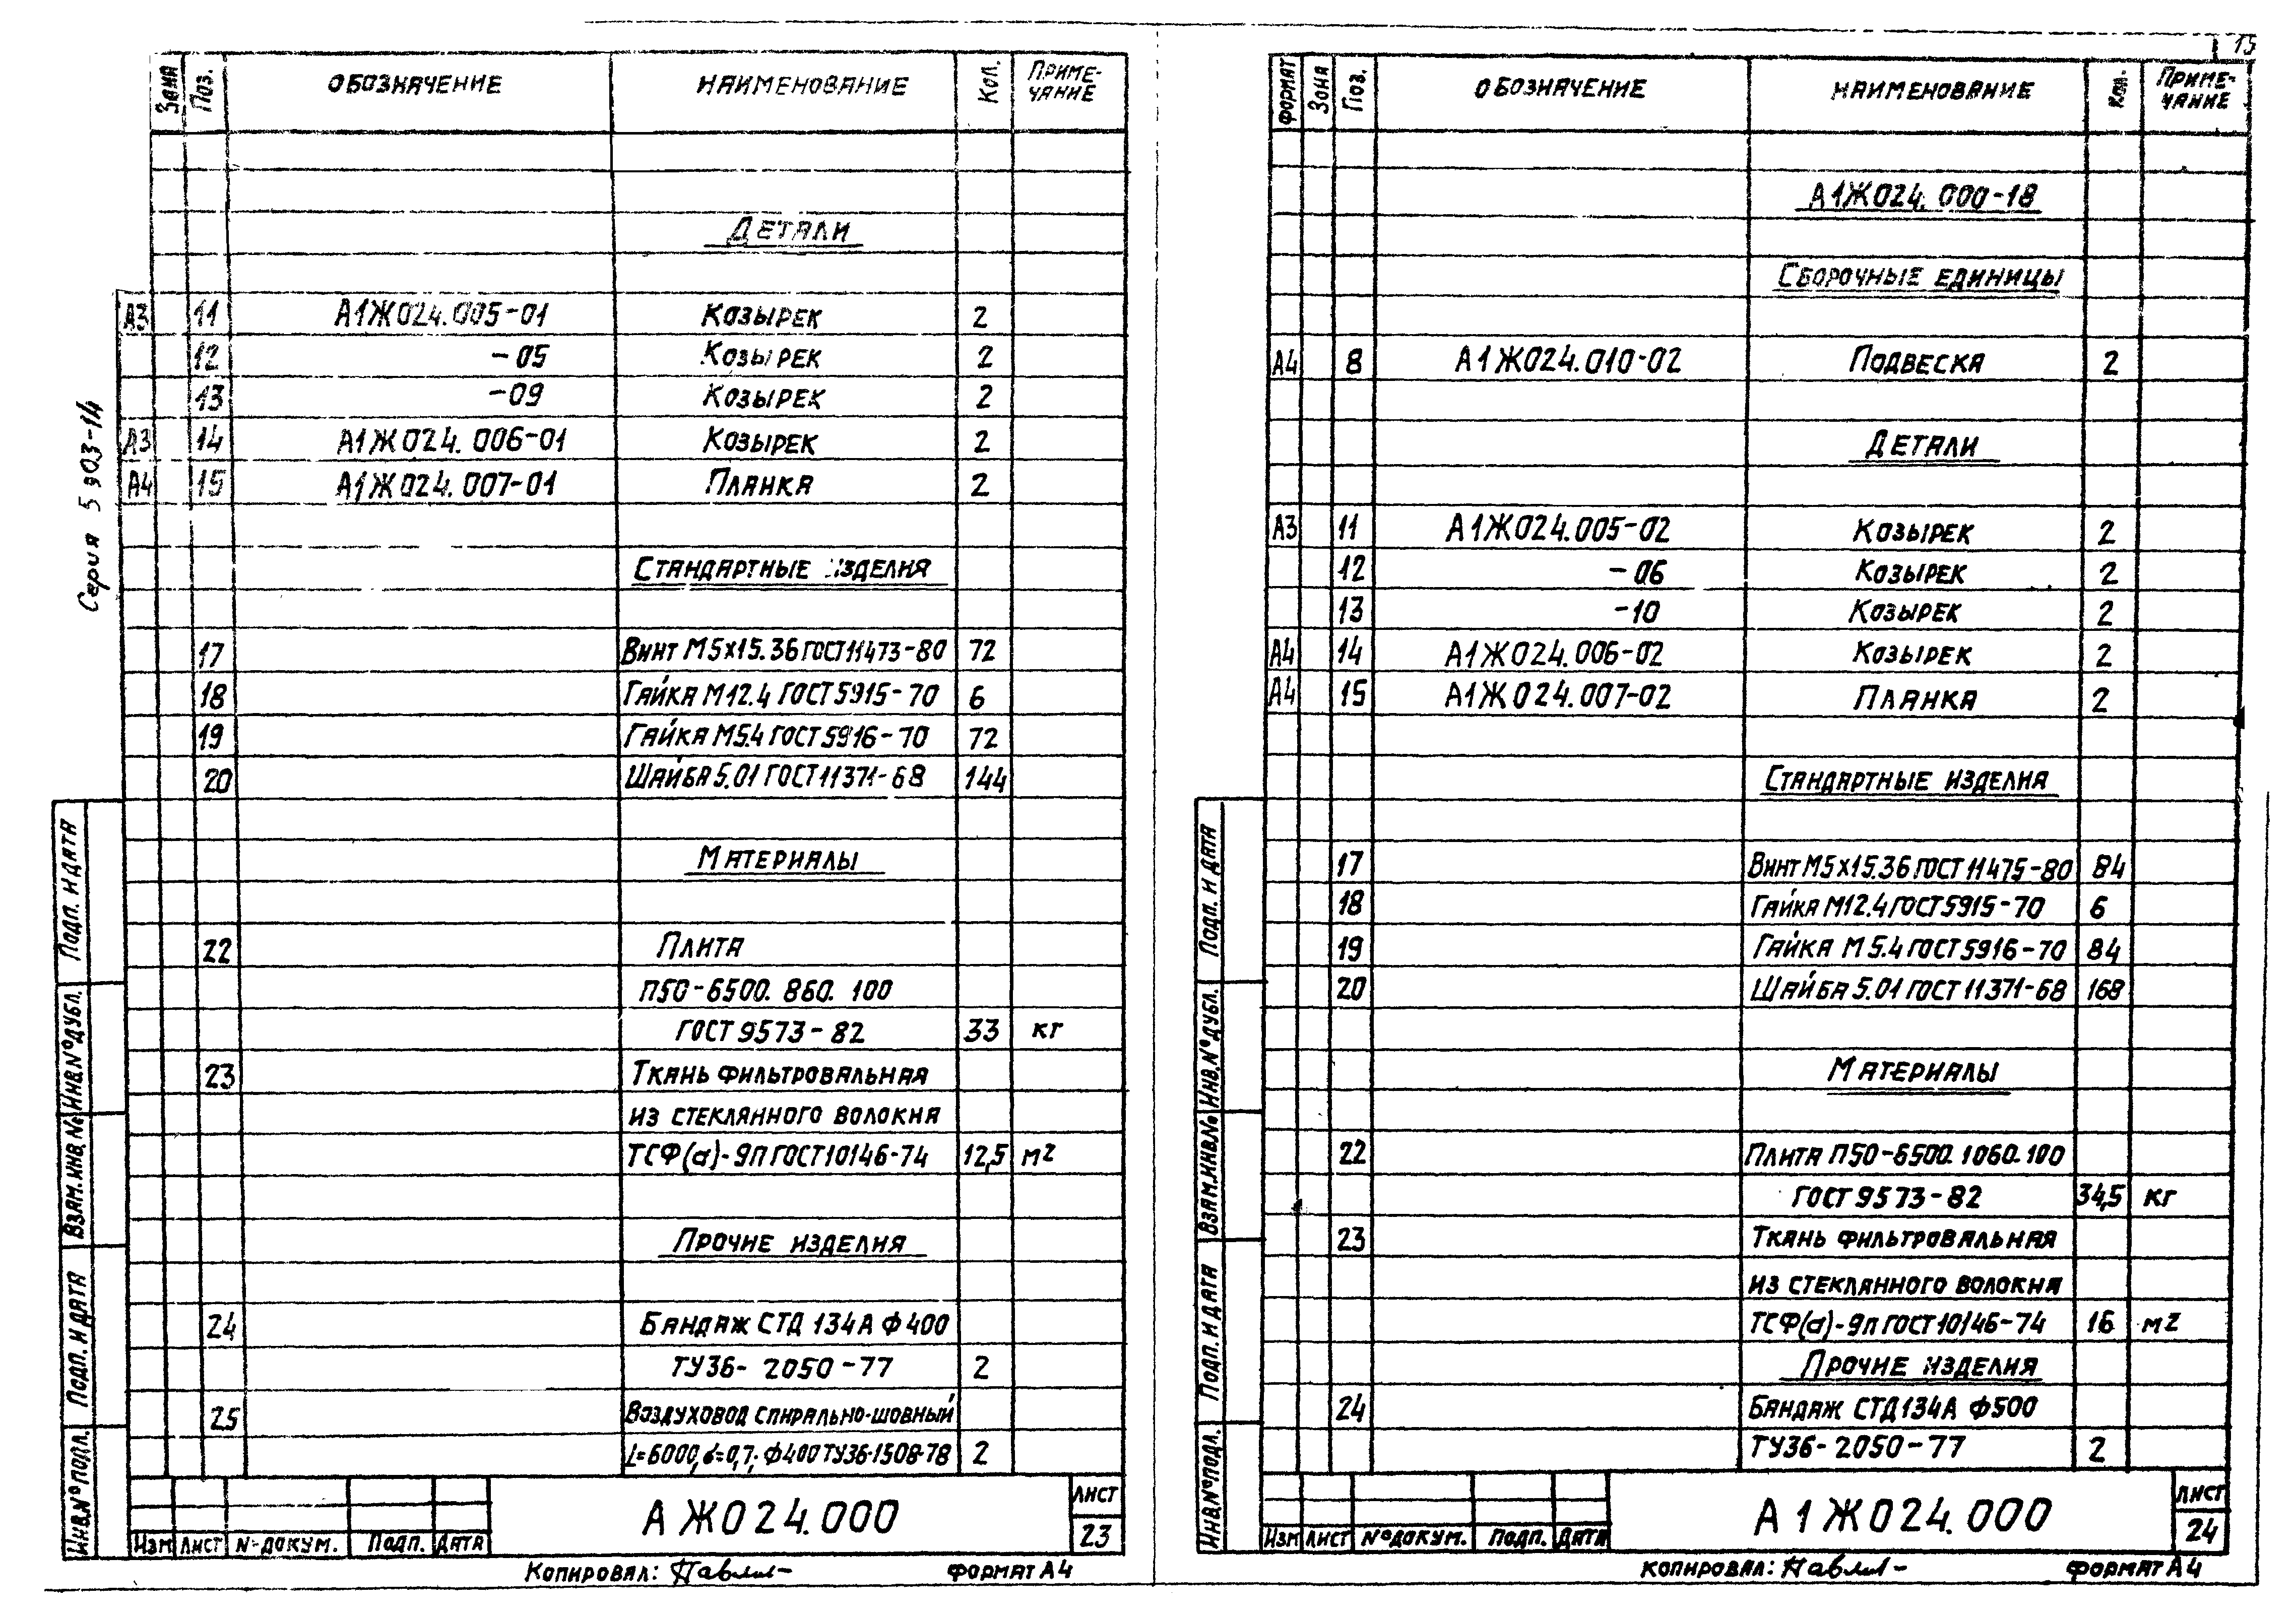 15
Серия 5 903-14
Зона Поз. ОБОЗНАЧЕНИЕ НАИМЕНОВАНИЕ Кол. ПРИМЕ-
ЧАНИЕ
ДЕТАЛИ
А3 11 А1Ж024.005-01 КОЗЫРЕК 2
12 -05 КОЗЫРЕК 2
13 -09 КОЗЫРЕК 2
А3 14 А1Ж024.006-01 КОЗЫРЕК 2
А4 15 А1Ж024.007-01 ПЛАНКА 2
СТАНДАРТНЫЕ ИЗДЕЛИЯ
17 ВИНТ М5х15.36 ГОСТ11473-80 72
18 ГАЙКА М12.4 ГОСТ5915-70 6
19 ГАЙКА М5.4 ГОСТ5916-70 72
20 ШАЙБА 5.01 ГОСТ11371-68 144
МАТЕРИАЛЫ
22 ПЛИТА
П50-6500.860.100
ГОСТ 9573-82 33 кг
23 ТКАНЬ ФИЛЬТРОВАЛЬНАЯ
ИЗ СТЕКЛЯННОГО ВОЛОКНА
ТСФ(а)-9п ГОСТ10146-74 12,5 м2
ПРОЧИЕ ИЗДЕЛИЯ
24 БАНДАЖ СТД 134А Ф400
ТУ36-2050-77 2
25 ВОЗДУХОВОД СПИРАЛЬНО-ШОВНЫЙ
L=6000, б=0,7; Ф400 ТУ36-1508-78 2
ПОДП. И ДАТА
ИНВ.№ДУБЛ.
ВЗАМ.ИНВ.№
ПОДП. И ДАТА
ИНВ.№ПОДЛ.
ИЗМ ЛИСТ №ДОКУМ. ПОДП. ДАТА
А Ж024.000
ЛИСТ
23
КОПИРОВАЛ: Павлил- ФОРМАТ А4
ФОРМАТ Зона Поз. ОБОЗНАЧЕНИЕ НАИМЕНОВАНИЕ Кол. ПРИМЕ-
ЧАНИЕ
А1Ж024.000-18
СБОРОЧНЫЕ ЕДИНИЦЫ
А4 8 А1Ж024.010-02 ПОДВЕСКА 2
ДЕТАЛИ
А3 11 А1Ж024.005-02 КОЗЫРЕК 2
12 -06 КОЗЫРЕК 2
13 -10 КОЗЫРЕК 2
А4 14 А1Ж024.006-02 КОЗЫРЕК 2
А4 15 А1Ж024.007-02 ПЛАНКА 2
СТАНДАРТНЫЕ ИЗДЕЛИЯ
17 ВИНТ М5х15.36 ГОСТ 11475-80 84
18 ГАЙКА М12.4 ГОСТ5915-70 6
19 ГАЙКА М5.4 ГОСТ5916-70 84
20 ШАЙБА 5.01 ГОСТ 11371-68 168
МАТЕРИАЛЫ
22 ПЛИТА П50-6500.1060.100
ГОСТ 9573-82 34,5 кг
23 ТКАНЬ ФИЛЬТРОВАЛЬНАЯ
ИЗ СТЕКЛЯННОГО ВОЛОКНА
ТСФ(а)-9п ГОСТ10146-74 16 м2
ПРОЧИЕ ИЗДЕЛИЯ
24 БАНДАЖ СТД134А Ф500
ТУ36-2050-77 2
ПОДП. И ДАТА
ИНВ.№ДУБЛ.
ВЗАМ.ИНВ.№
ПОДП. И ДАТА
ИНВ.№ПОДЛ.
ИЗМ ЛИСТ №ДОКУМ. ПОДП. ДАТА
А1Ж024.000
ЛИСТ
24
КОПИРОВАЛ: Павлил- ФОРМАТ А4